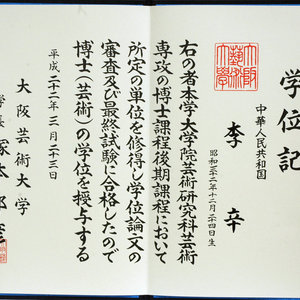 学位記
中華人民共和国
李辛
昭和五二年十二月二四日生
右の者本学大学院芸術研究科芸術
専攻の博士課程後期課程において
所定の単位を修得し学位論文の
審査及び最終試験に合格したので
博士(芸術)の学位を授与する
平成二十二年三月二十三日
大阪芸術大学
学長 塚本